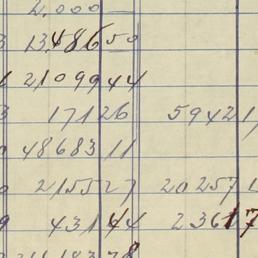 2,000
13,486 50
21099 44
171 26 5942 1
48683 11
21552 7 20257 1
431 44 2361 7